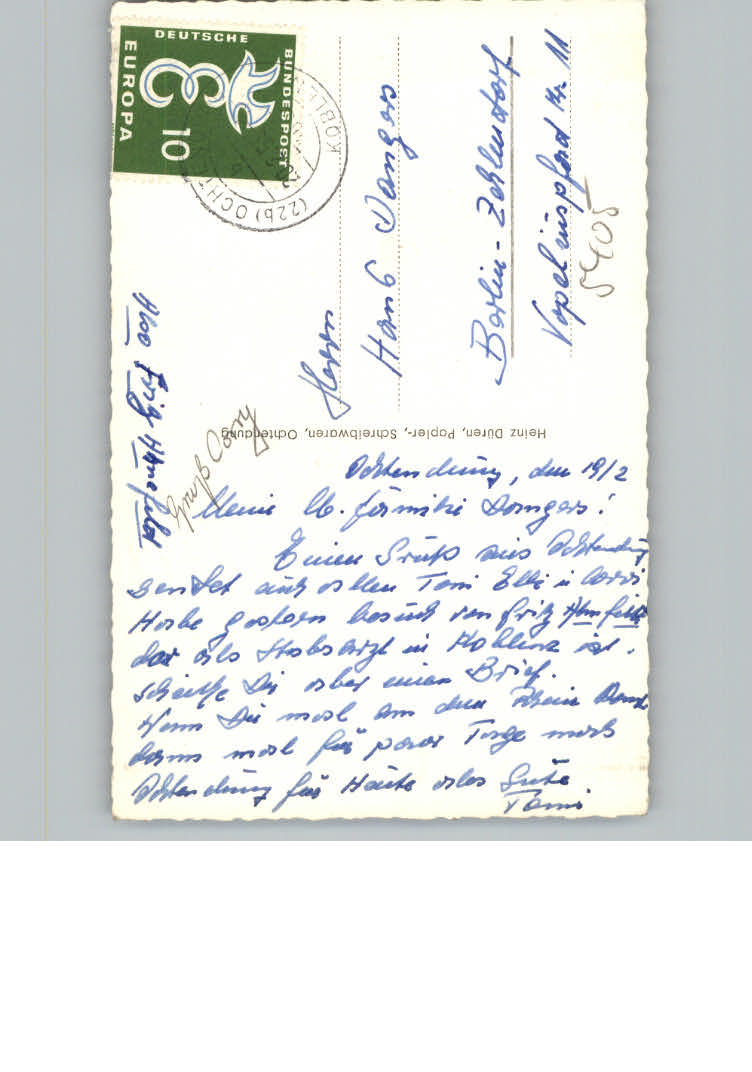 DEUTSCHE
BUNDESPOST
EUROPA
10
(22b) OCHT
KOBLE
Herrn
Hans Dangers
Berlin-Zehlendorf
Nr. 11
5405
Heinz Düren, Papier-, Schreibwaren, Ochtendung
Ochtendung, den 19/2
Meine lb. Familie Dangers!
Einen Gruß aus Ochtendung
sendet euch allen Toni Elli u
Habe gestern besuch von Fritz
der als Stabsarzt in Koblenz ist.
Dir aber einen Brief.
Wenn Du mal an den Rhein
dann mal für paar Tage nach
Ochtendung für Heute alles Gute
Toni
Also Fritz
Gruß